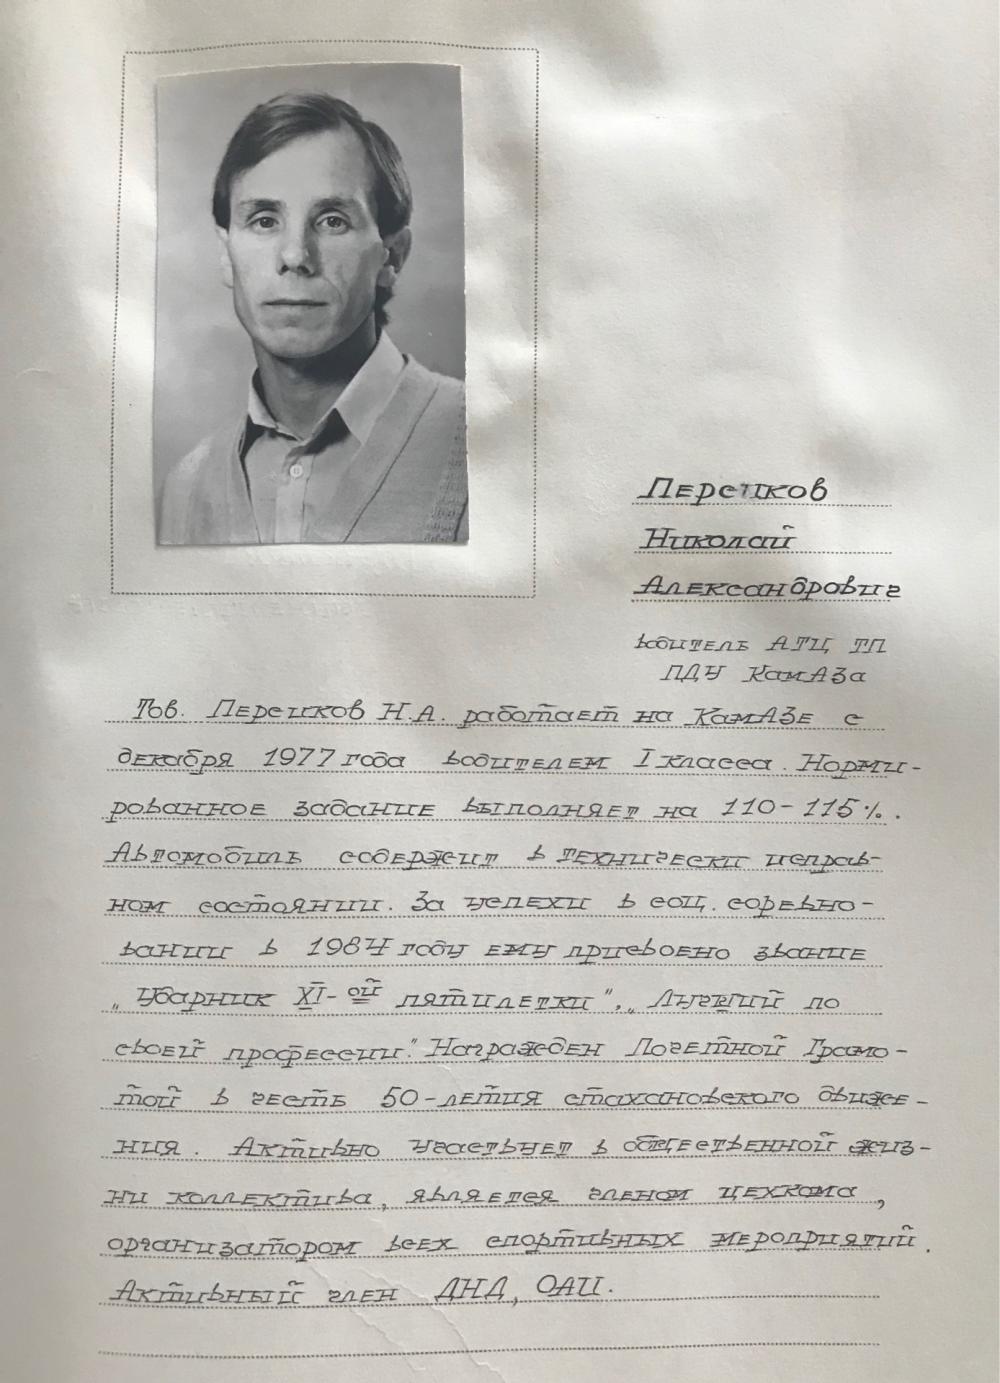 Перешков
Николай
Александрович
водитель АТЦ ТП
ПДУ КамАЗа
Тов. Перешков Н.А. работает на КамАЗе с
декабря 1977 года водителем I класса. Норми-
рованное задание выполняет на 110-115%.
Автомобиль содержит в технически исправ-
ном состоянии. За успехи в соц. соревно-
вании в 1984 году ему присвоено звание
„Ударник XI-ой пятилетки", „Лучший по
своей профессии". Награжден Почетной Грамо-
той в честь 50-летия стахановского движе-
ния. Активно участвует в общественной жиз-
ни коллектива, является членом цехкома,
организатором всех спортивных мероприятий.
Активный член ДНД,